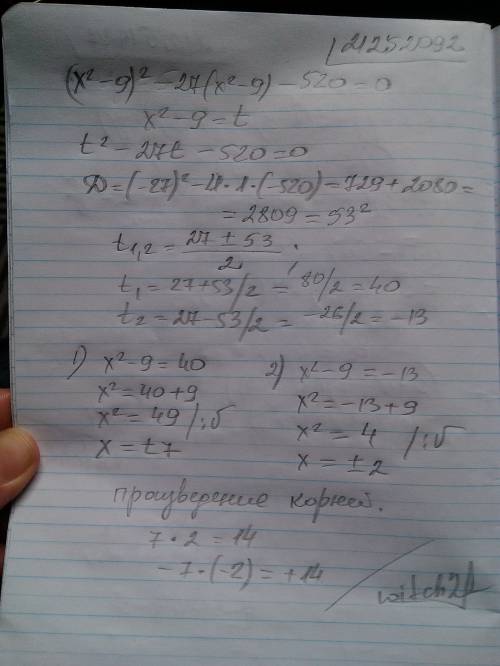 21252092
(x²-9)²-27(x²-9)-520=0
x²-9=t
t²-27t-520=0
D=(-27)²-4·1·(-520)=729+2080=
=2809=53²
t₁,₂=27±53/2
t₁=27+53/2=80/2=40
t₂=27-53/2=-26/2=-13
1) x²-9=40
x²=40+9
x²=49 /:√
x=±7
2) x²-9=-13
x²=-13+9
x²=4 /:√
x=±2
произведение корней.
7·2=14
-7·(-2)=+14
witch21